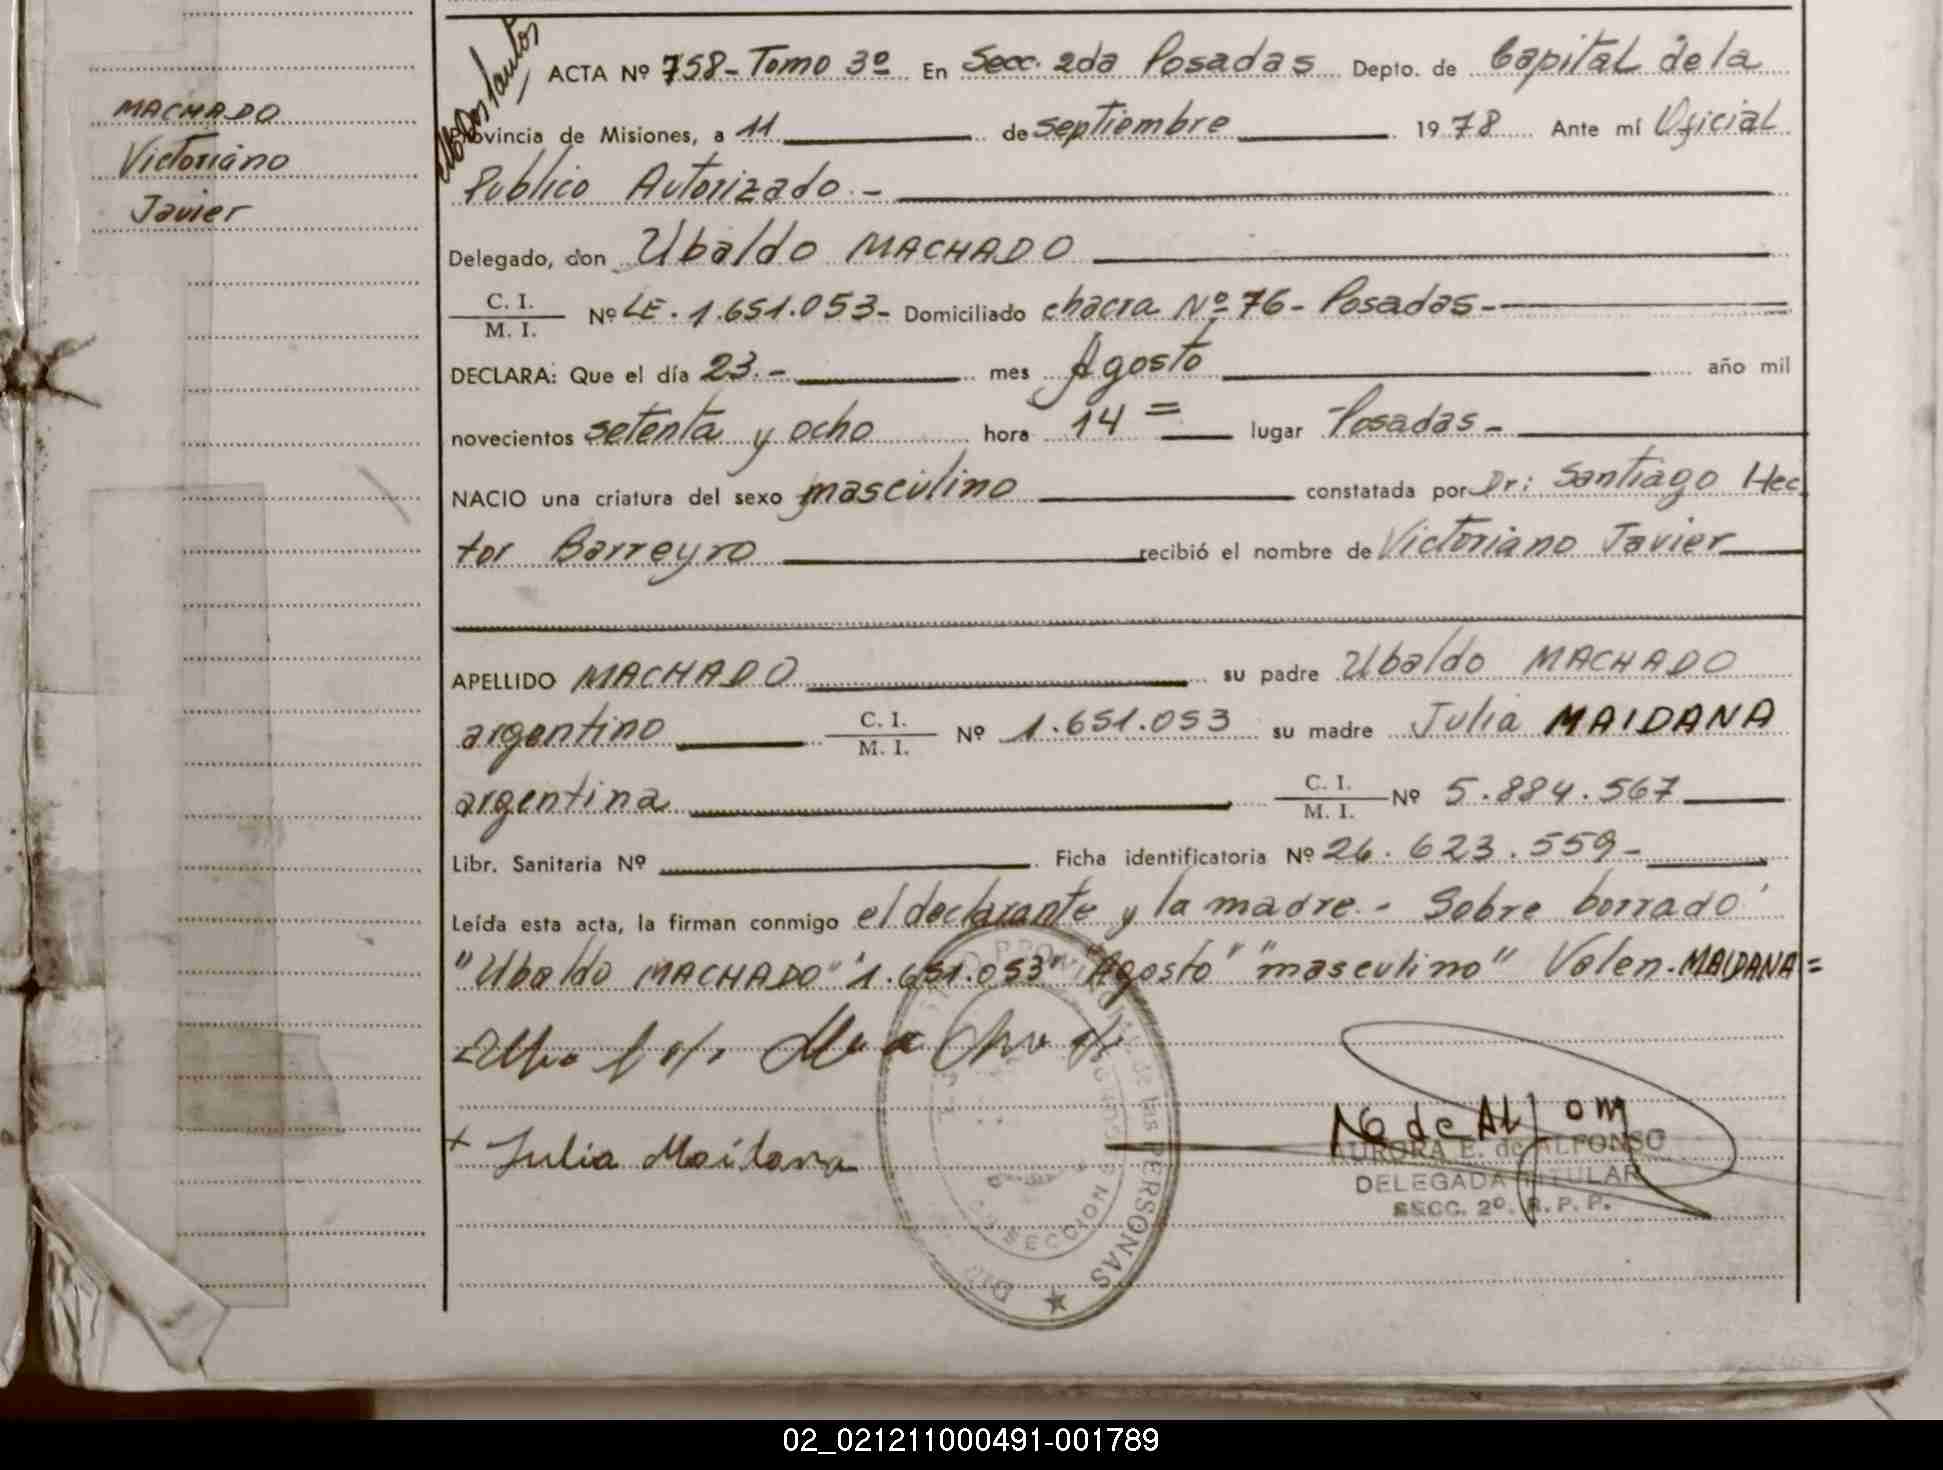 MACHADO
Victoriano
Javier
ACTA Nº 758- Tomo 3º En Secc. 2da Posadas Depto. de Capital de la
Provincia de Misiones, a 11 de septiembre 1978 Ante mí Oficial
Publico Autorizado.-
Delegado, don Ubaldo MACHADO
C. I.
M. I. Nº LE. 1.651.053- Domiciliado chacra Nº 76- Posadas-
DECLARA: Que el día 23.- mes Agosto año mil
novecientos setenta y ocho hora 14= lugar Posadas-
NACIO una criatura del sexo masculino constatada por Dr: Santiago Hec
tor Barreyro recibió el nombre de Victoriano Javier
APELLIDO MACHADO su padre Ubaldo MACHADO
argentino C. I.
M. I. Nº 1.651.053 su madre Julia MAIDANA
argentina C. I.
M. I. Nº 5.884.567
Libr. Sanitaria Nº Ficha identificatoria Nº 26.623.559-
Leída esta acta, la firman conmigo el declarante y la madre.- Sobre borrado
"Ubaldo MACHADO" "1.651.053" "Agosto" "masculino" Valen.-MAIDANA=
+ Julia Maidana
AURORA E. de ALFONSO
DELEGADA TITULAR
SECC. 2º. R. P. P.
PERSONAS
02_021211000491-001789